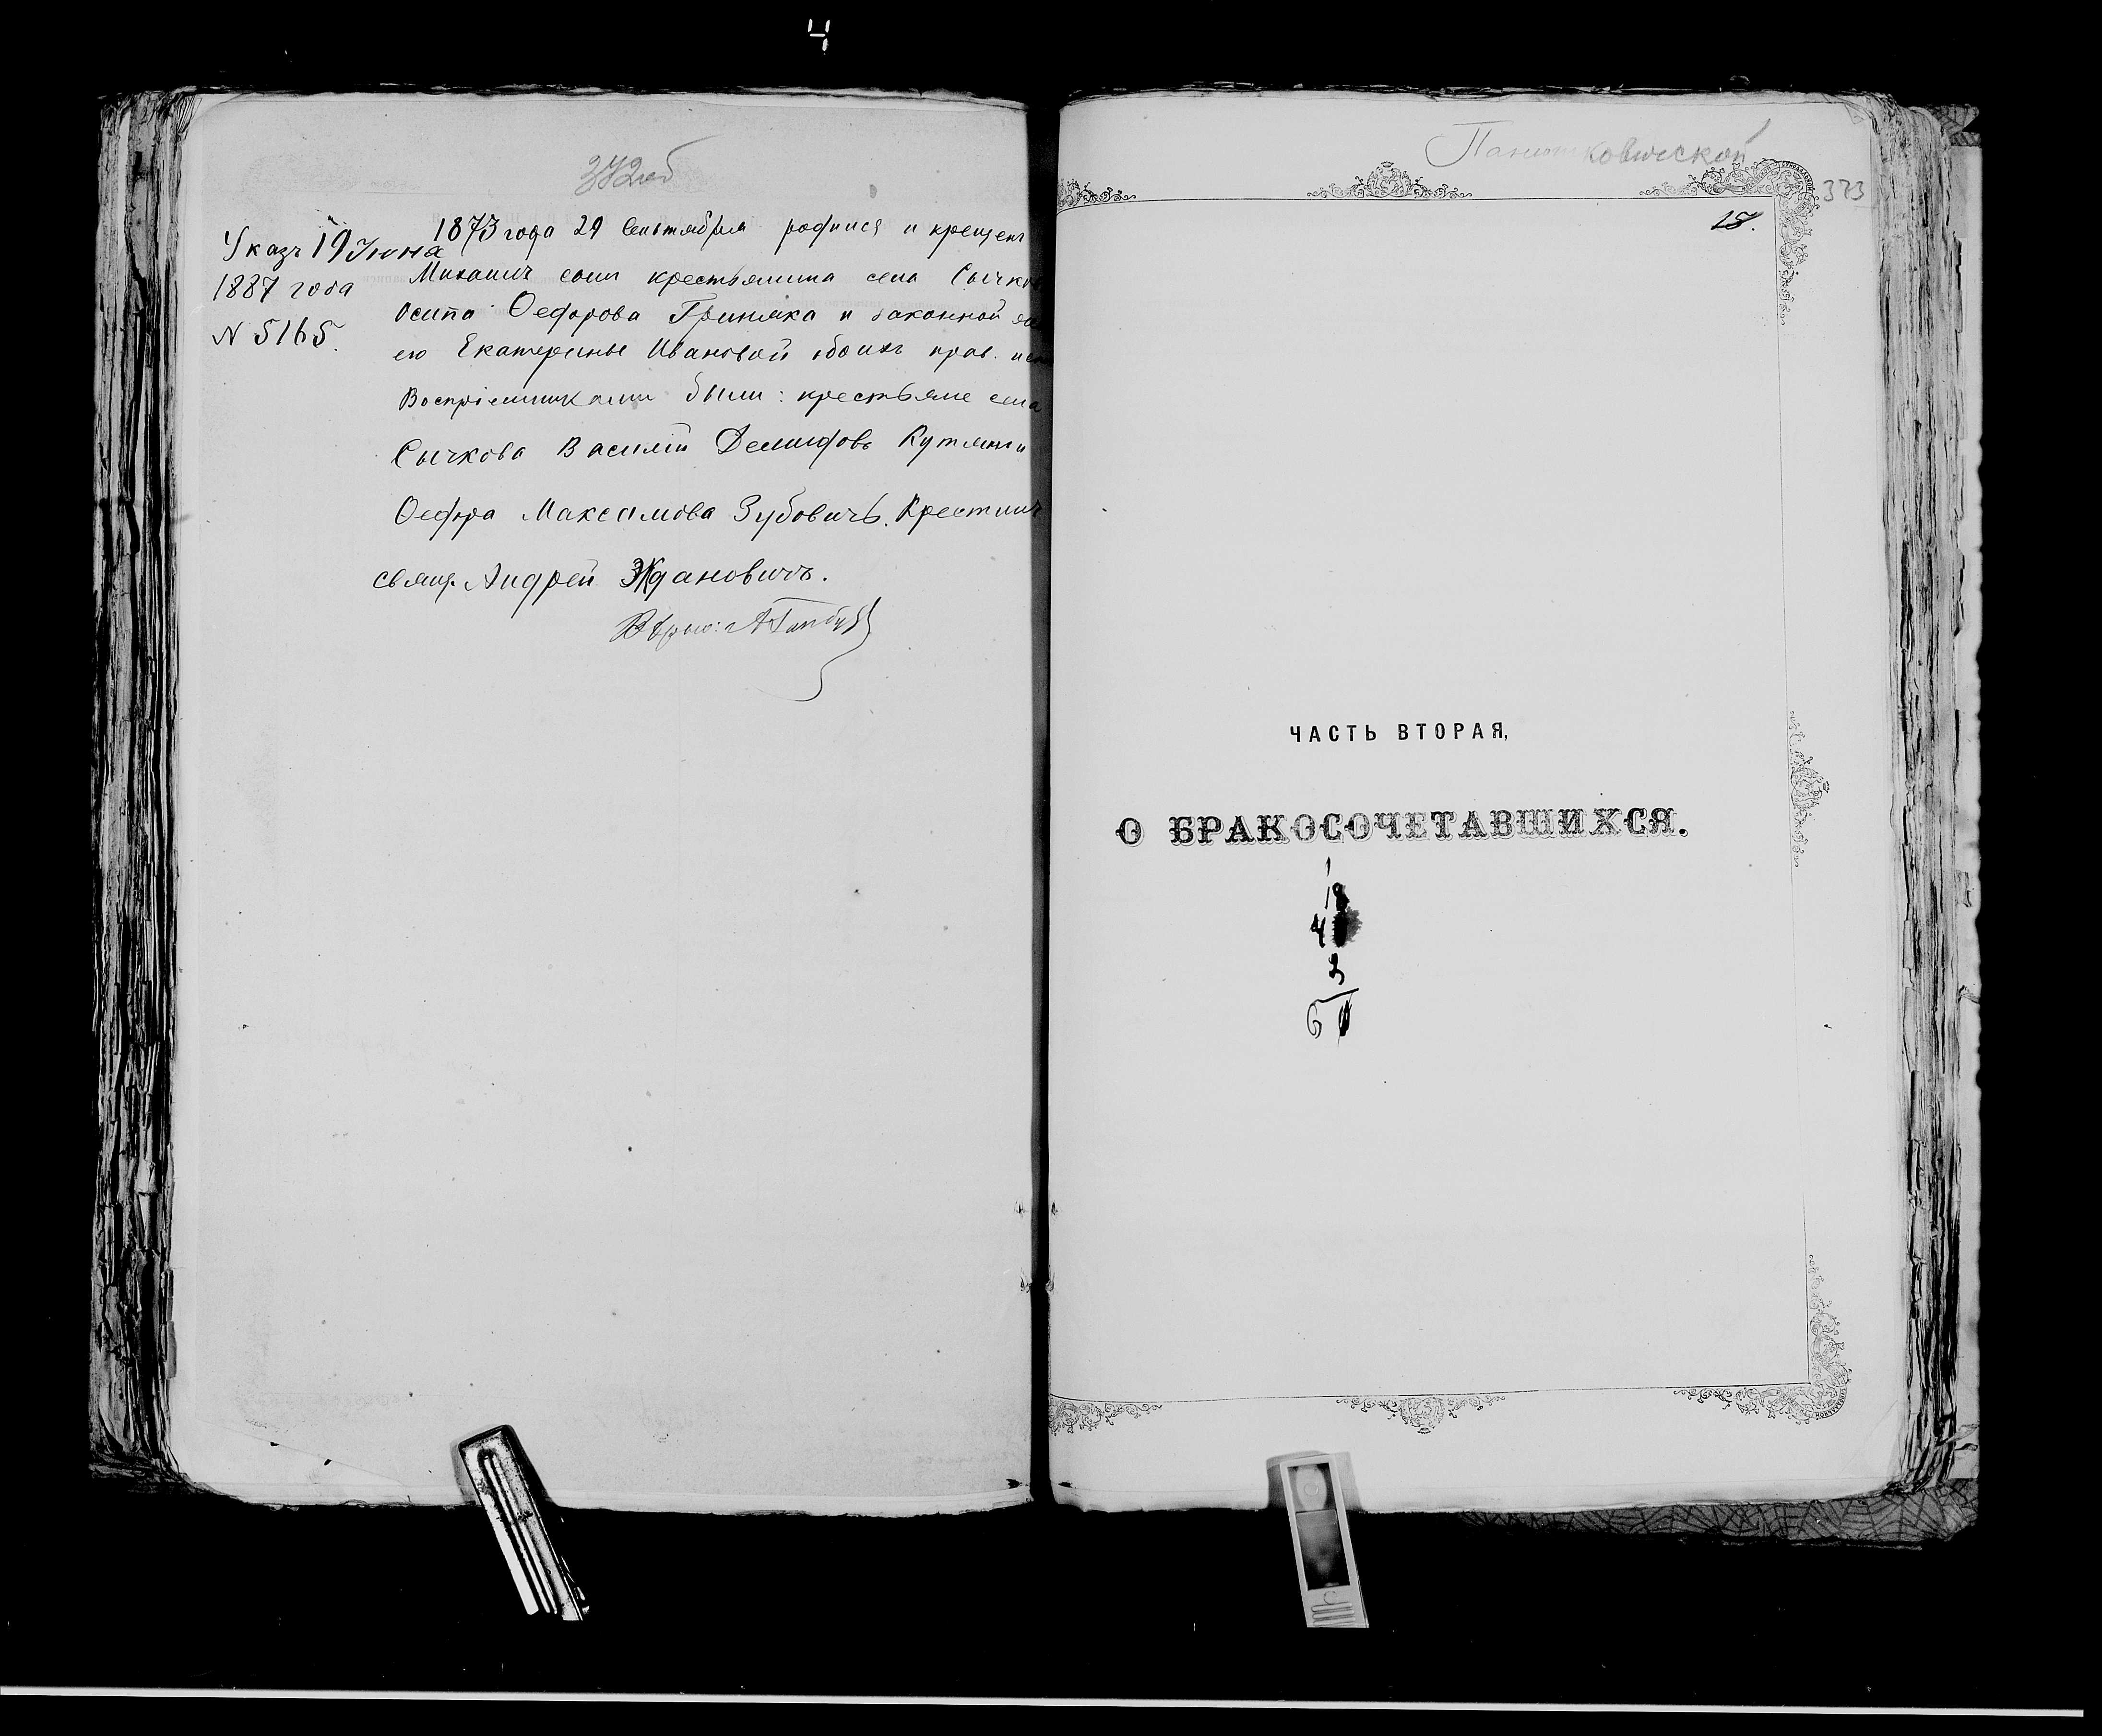 4
372об
Указъ 19 Іюна
1887 года
N 5165.
1873 года 29 Сентября родился и крещенъ
Михаилъ сынъ крестьянина села Сычко
Осипа Ѳеодорова Гриняка и законной
его Екатерины Ивановой обоихъ прав.
Воспріемниками были: крестьяне села
Сычкова Василій Демидовъ и
Максимова Зубовичъ. Крестилъ
свящ. Андрей Ждановичъ.
ковичской
373
18.
ЧАСТЬ ВТОРАЯ,
О БРАКОСОЧЕТАВШИХСЯ.
1
18
4
3
6